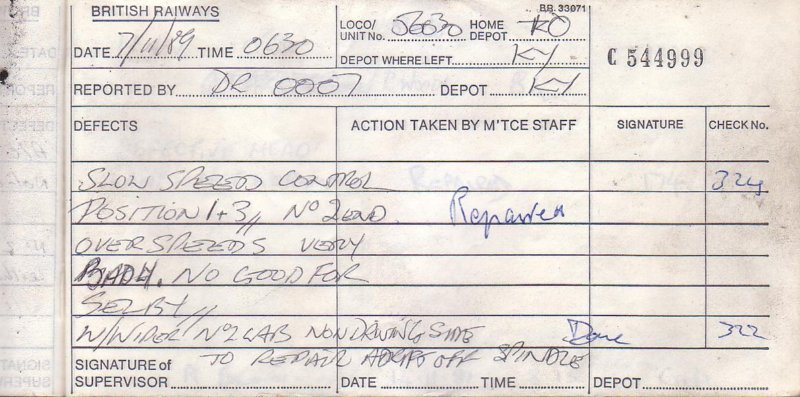 BRITISH RAIWAYS
B.R. 33071
DATE 7/11/89 TIME 0630
LOCO/ UNIT No. 56030 HOME DEPOT KO
DEPOT WHERE LEFT KY
C 544999
REPORTED BY DR 0007 DEPOT KY
DEFECTS ACTION TAKEN BY M'TCE STAFF SIGNATURE CHECK No.
SLOW SPEED CONTROL 324
POSITION 1+3,, No 2 END. Reported
OVERSPEEDS VERY
BADLY. NO GOOD FOR
SELBY,,
W/WIPER No2 CAB NON DRIVING SIDE Done 322
TO REPAIR ADRIFT OFF SPINDLE
SIGNATURE of SUPERVISOR DATE TIME DEPOT